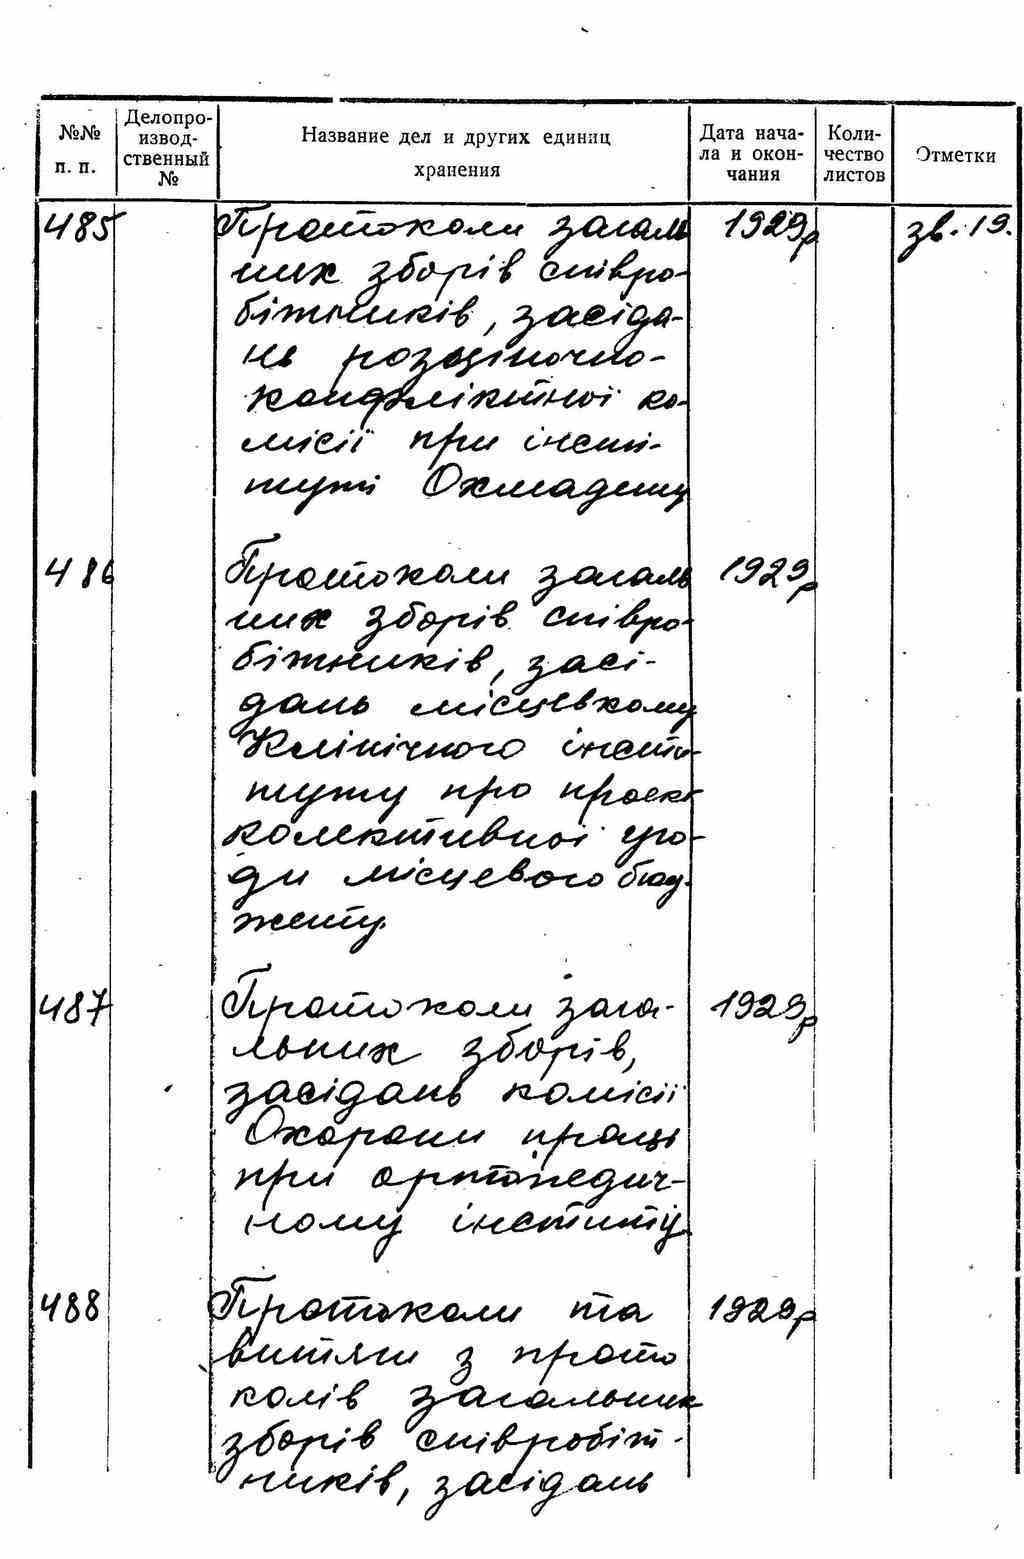 №№ п. п.
Делопро-
извод-
ственный
№
Название дел и других единиц
хранения
Дата нача-
ла и окон-
чания
Коли-
чество
листов
Отметки
485 Протоколи загаль 1929р зв. 19.
них зборів співро-
бітників, засіда-
нь розціночно-
конфліктної ко-
місії при інсти-
туті Охмадету
486 Протоколи загаль 1929р
них зборів співро-
бітників, засі-
дань місцевкому
Клінічного інсти-
туту про проект
колективної уго-
ди місцевого бюд-
жету.
487 Протоколи зага- 1929р
льних зборів,
засідань комісії
Охорони праці
при ортопедич-
ному інституту
488 Протоколи та 1929р
витяги з прото
колів загальних
зборів співробіт-
ників, засідань